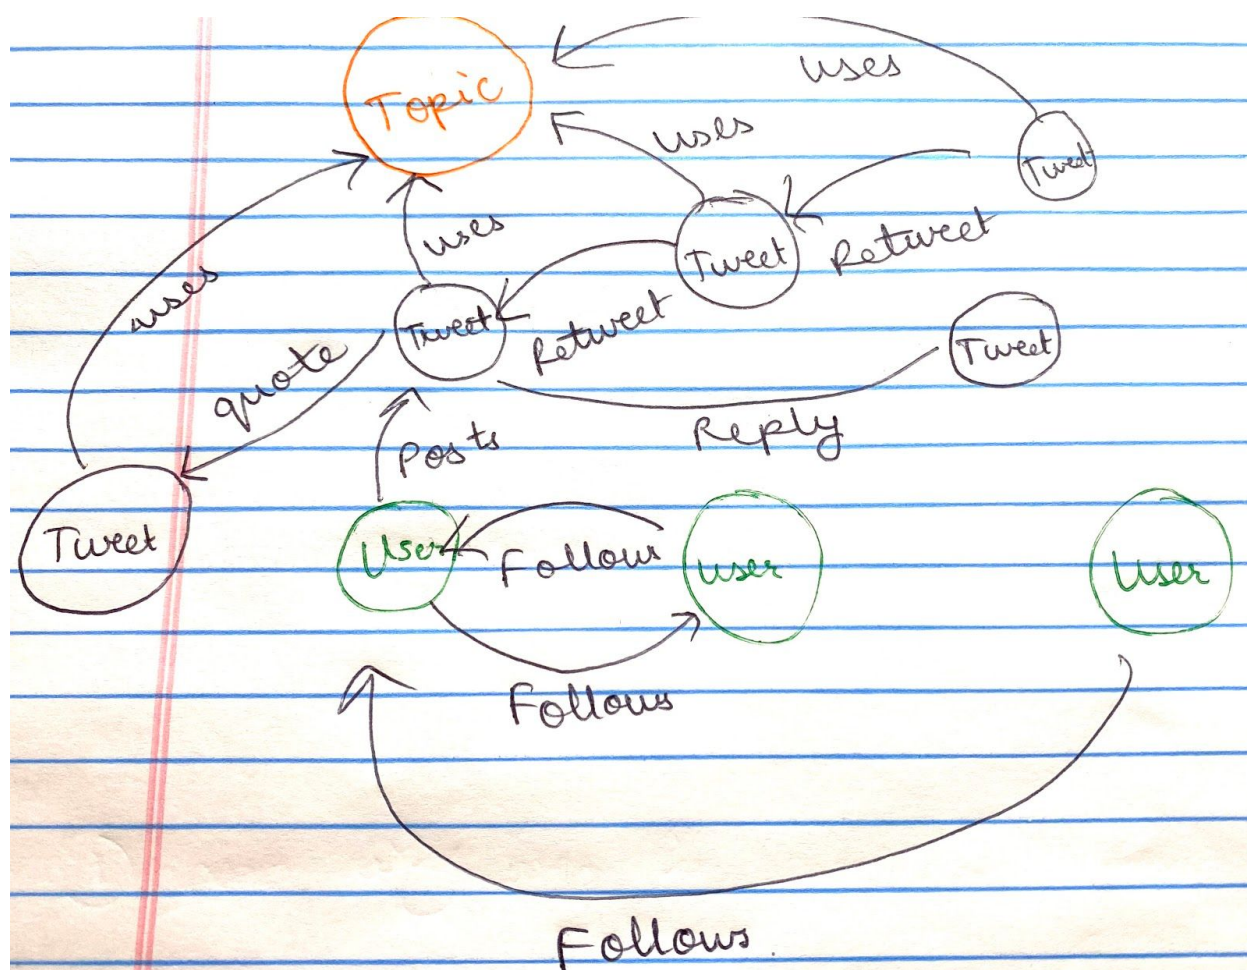 uses
Topic
uses
Tweet
uses
Tweet
Retweet
uses
Tweet
Retweet
Tweet
quote
Posts
Reply
Tweet
User
Follows
user
User
Follows
Follows